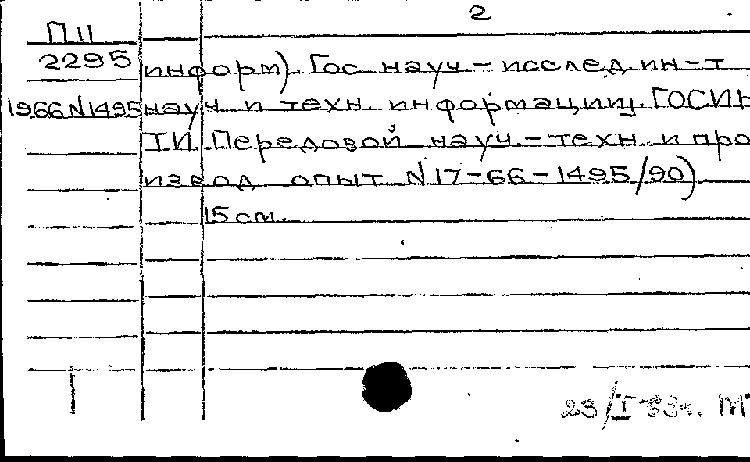 2
П 11
2295 информ). Гос. науч.-исслед. ин-т
1966 N1495 науч. и техн. информации. ГОСИН
ТИ. Передовой науч.-техн. и про
извод. опыт N17-66-1495/90)
15 см.
23/I